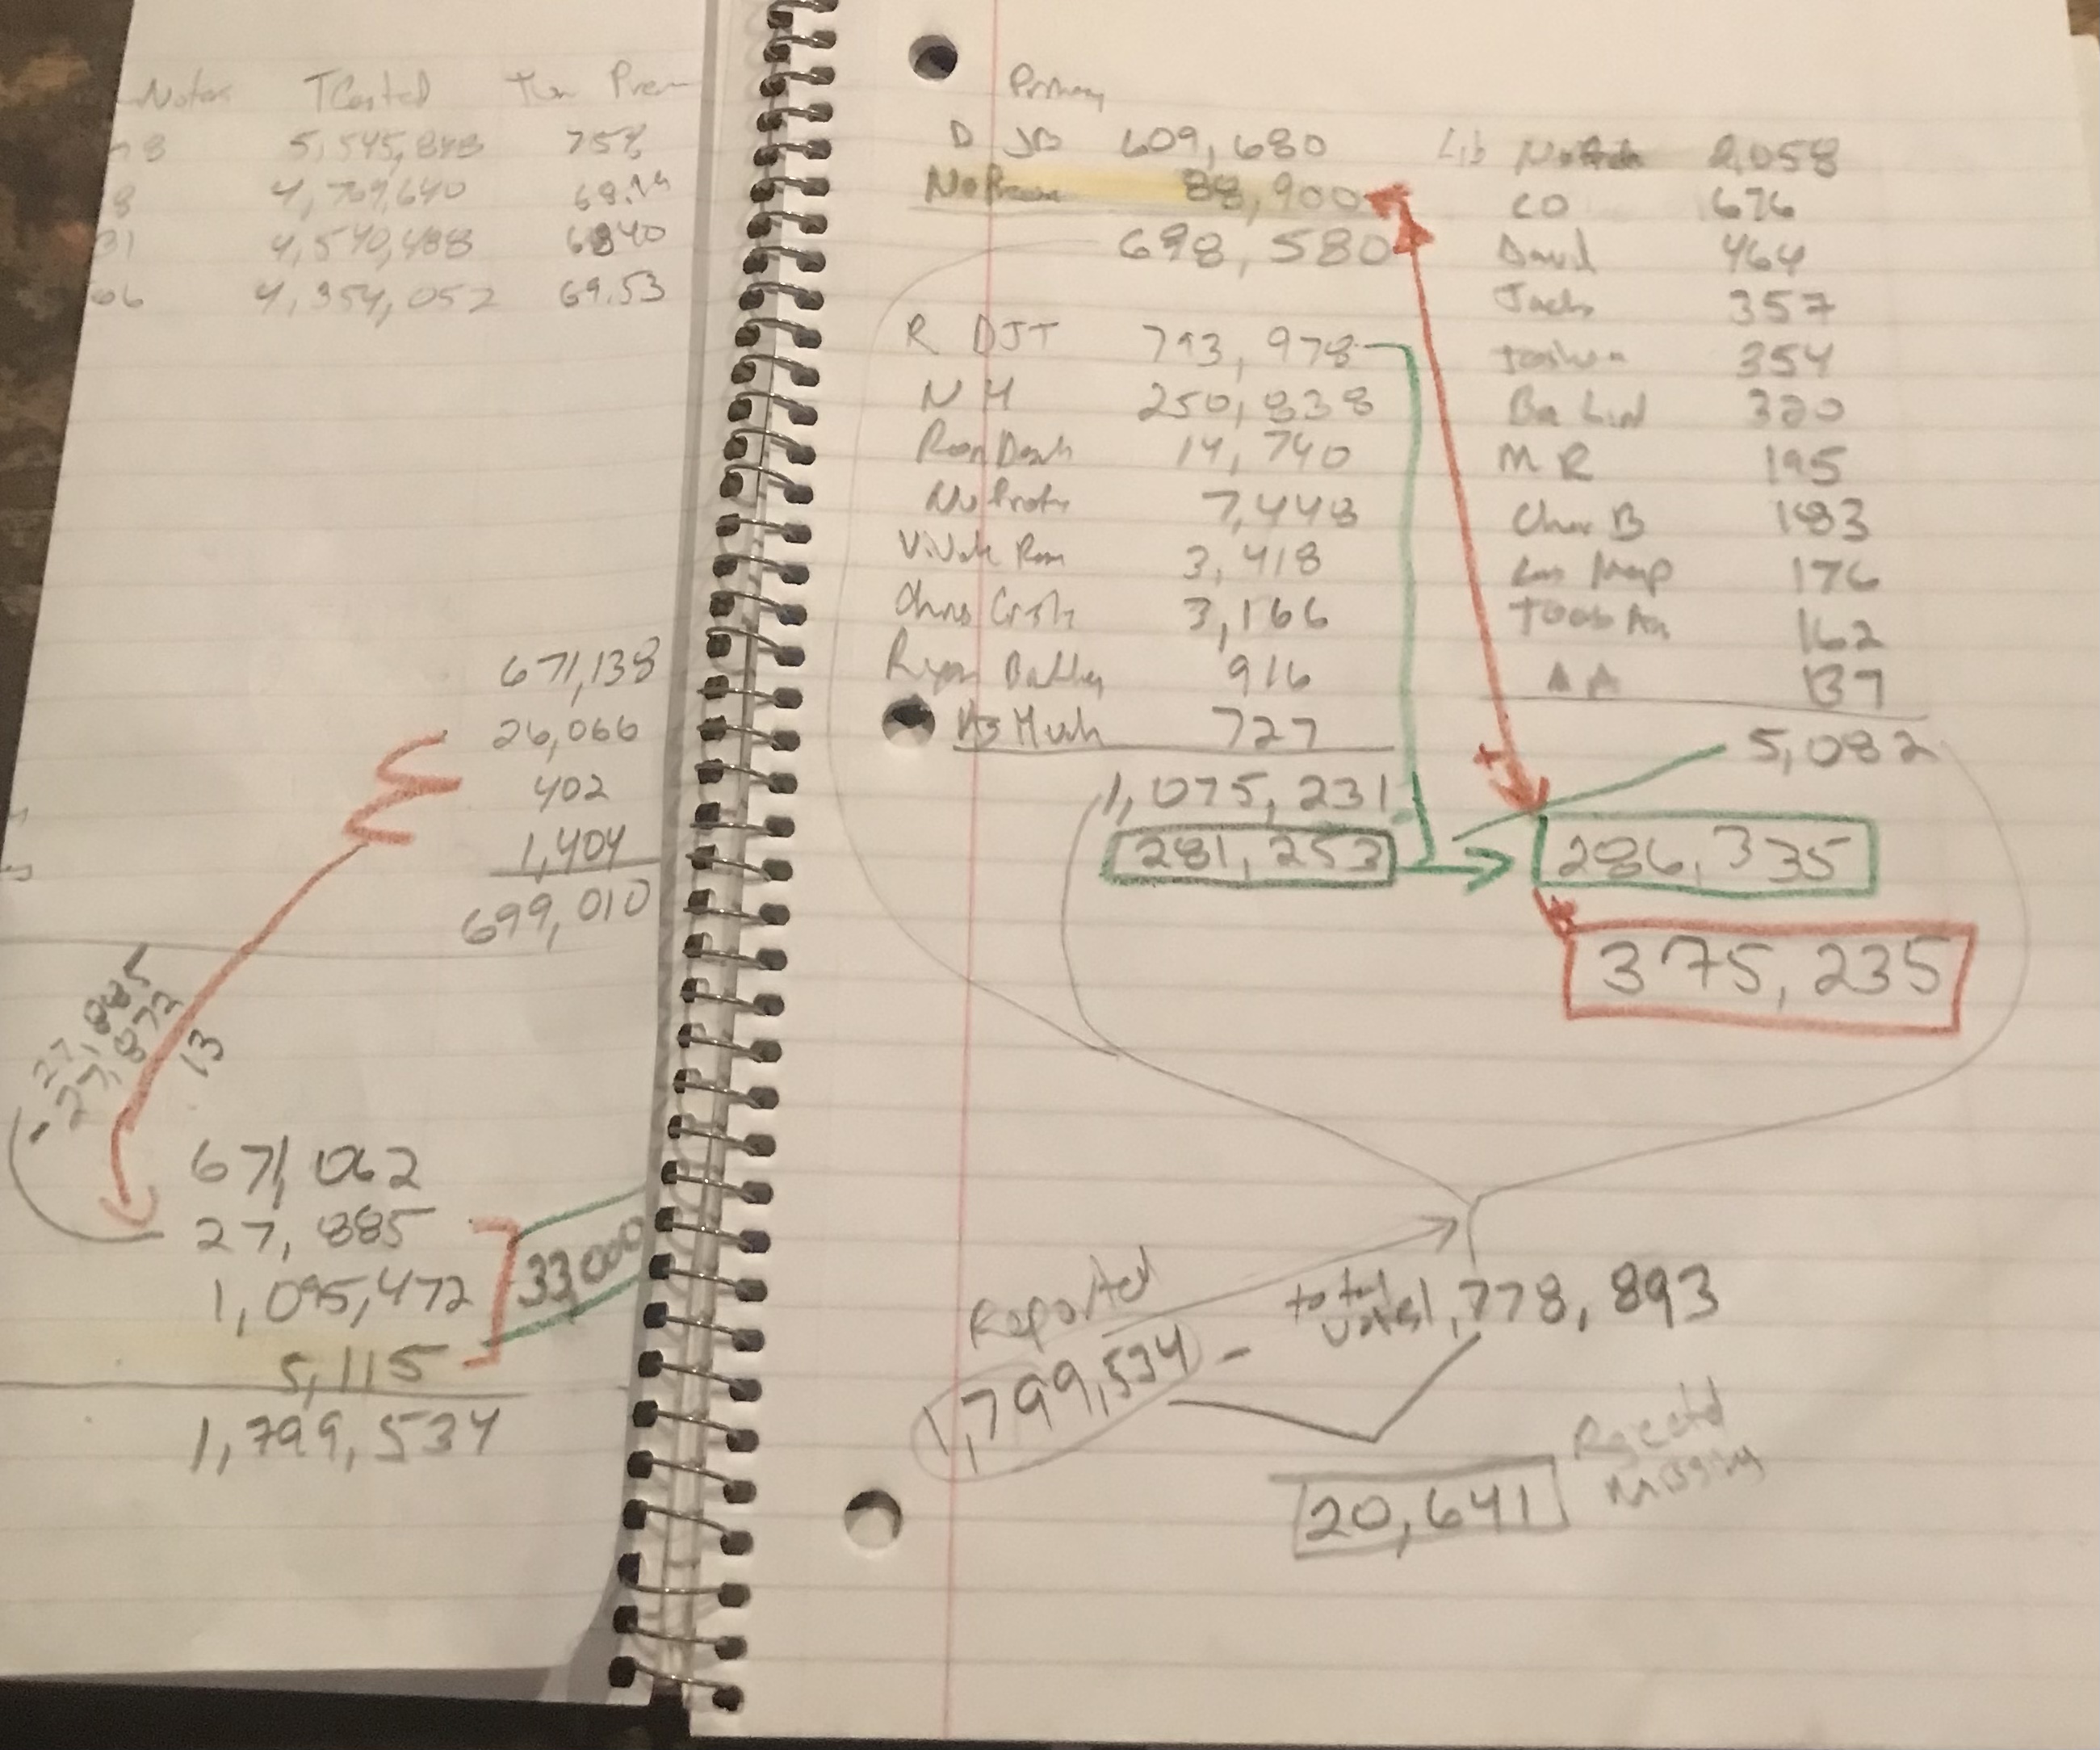 Notes TCasted Turn Prev
8 5,545,848 75%
8 4,769,640 68.19
31 4,540,488 6840
66 4,354,052 69.53
671,138
26,066
402
1,404
699,010
27,885
- 27,872
13
671,062
27,885
1,095,472
5,115
33,000
1,799,534
Primary
D JB 609,680
No Prem 88,900
698,580
R DJT 793,978
N H 250,838
Ron Desh 14,740
No Prefe 7,448
Vivek Ram 3,418
Chris Cristi 3,166
Ryan Bakley 916
As Huch 727
1,075,231
281,253
Lib 2,058
CO 676
David 464
Jacb 357
Joshua 354
Ba Lind 320
M R 195
Char B 183
Lars Map 176
162
AA 137
5,082
286,335
375,235
Reported
1,799,534 - total votes 1,778,893
20,641
Rejected
missing